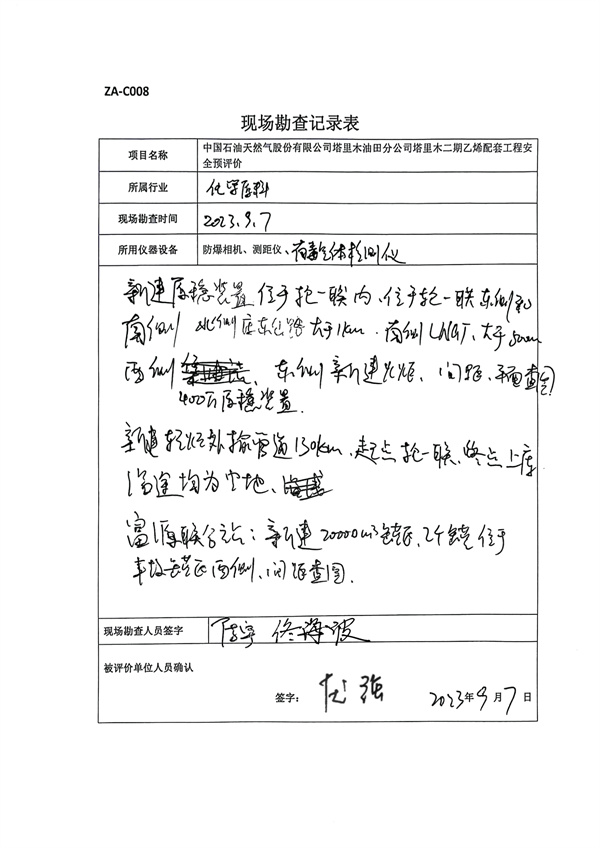 ZA-C008
现场勘查记录表
项目名称
中国石油天然气股份有限公司塔里木油田分公司塔里木二期乙烯配套工程安
全预评价
所属行业
化学原料
现场勘查时间
2023.9.7
所用仪器设备
防爆相机、测距仪、有毒气体检测仪
新建原稳装置位于轮一联内、位于轮一联东侧和
南侧 北侧 东公路大于1km. 南侧LNG厂、大于500m
西侧 、东侧新建火炬、间距、平面图
400万原稳装置.
新建轻烃外输管道130km、起点轮一联、终点上库
沿途均为空地、
富源联合站:新建20000m³储罐、2个储罐位于
事故罐西侧、间距查图.
现场勘查人员签字
陈宇 佟海波
被评价单位人员确认
签字:
强
2023年9月7日